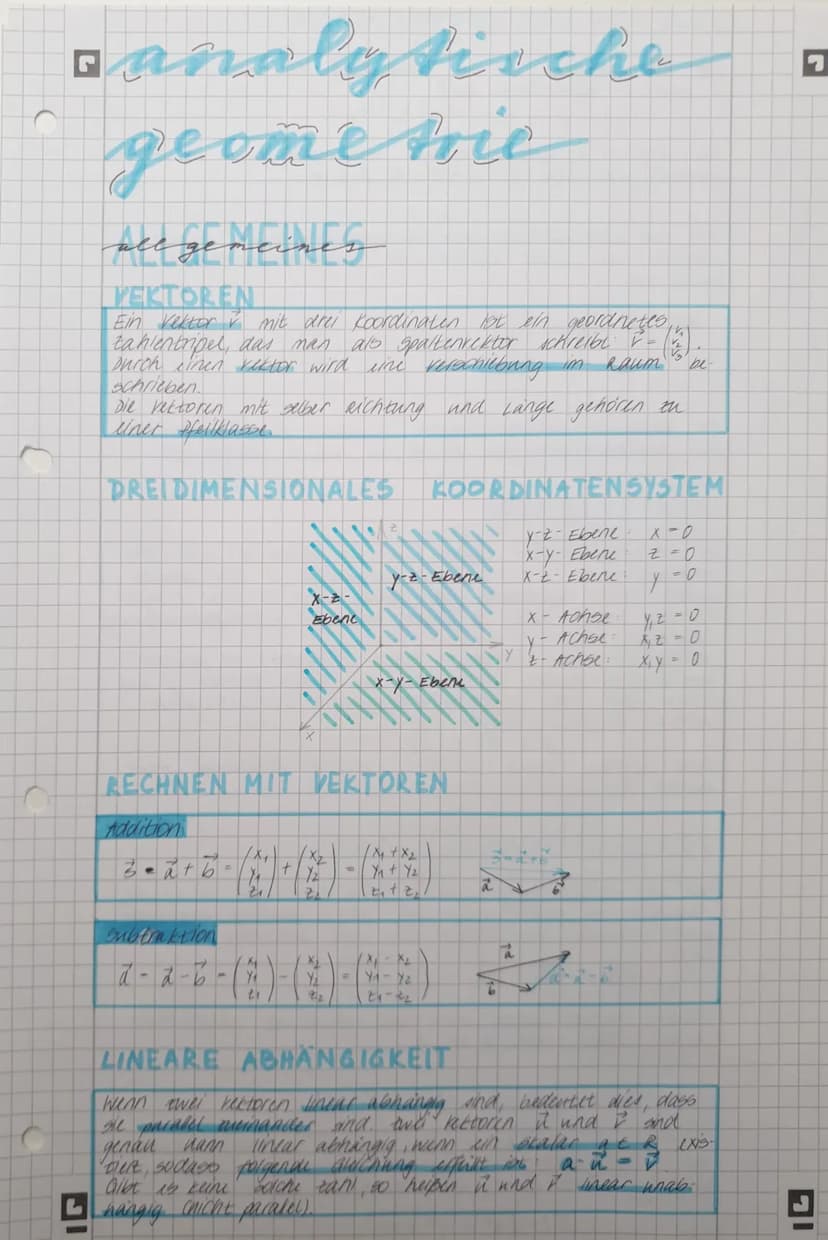 analytische
geometrie
ALLGEMEINES
allgemeines
VEKTOREN
Ein Vektor v⃗ mit drei Koordinaten ist ein geordnetes
Zahlentripel, das man als Spaltenvektor schreibt: v⃗ = (v₁ v₂ v₃).
Durch einen Vektor wird eine Verschiebung im Raum be-
schrieben.
Die Vektoren mit selber Richtung und Länge gehören zu
einer Pfeilklasse.
DREIDIMENSIONALES KOORDINATENSYSTEM
z
y-z-Ebene
x-z-
Ebene
x-y-Ebene
y
x
y-z-Ebene: x=0
x-y-Ebene: z=0
x-z-Ebene: y=0
x-Achse: y,z=0
y-Achse: x,z=0
z-Achse: x,y=0
RECHNEN MIT VEKTOREN
Addition
s⃗ = a⃗ + b⃗ = (x₁ y₁ z₁) + (x₂ y₂ z₂) = (x₁+x₂ y₁+y₂ z₁+z₂)
s⃗=a⃗+b⃗
a⃗
b⃗
Subtraktion
d⃗ = a⃗ - b⃗ = (x₁ y₁ z₁) - (x₂ y₂ z₂) = (x₁-x₂ y₁-y₂ z₁-z₂)
a⃗
d⃗=a⃗-b⃗
b⃗
LINEARE ABHÄNGIGKEIT
Wenn zwei Vektoren linear abhängig sind, bedeutet dies, dass
sie parallel zueinander sind. Zwei Vektoren u⃗ und v⃗ sind
genau dann linear abhängig, wenn ein Skalar a ∈ R exis-
tiert, sodass folgende Gleichung erfüllt ist: a·u⃗ = v⃗
Gibt es keine solche Zahl, so heißen u⃗ und v⃗ linear unab-
hängig (nicht parallel).